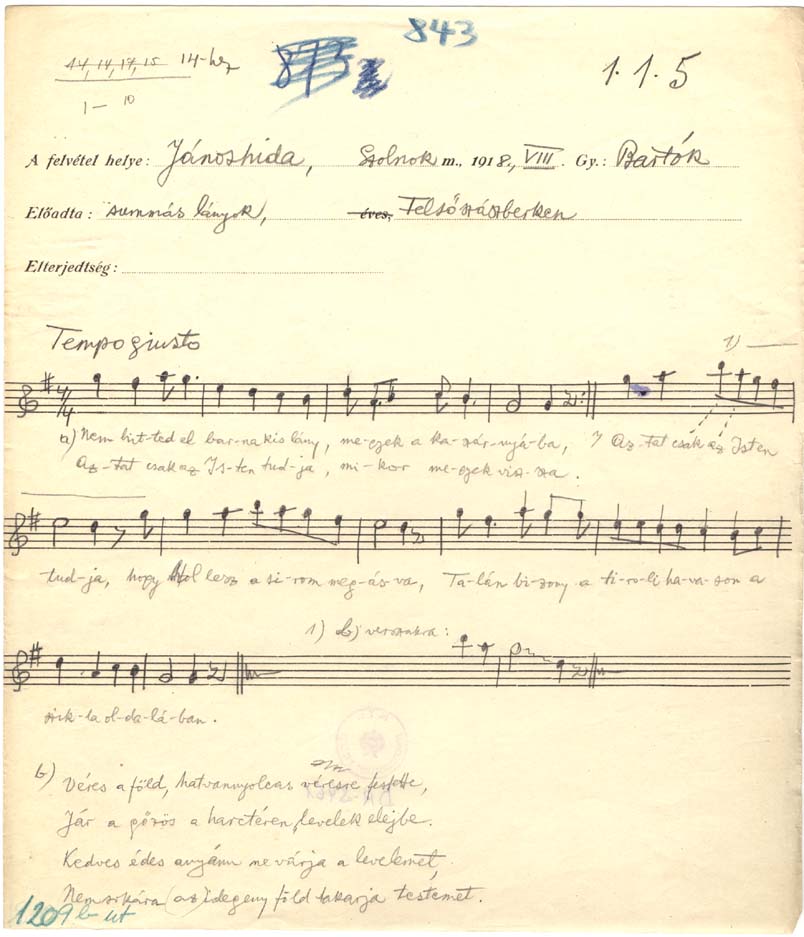 843
14, 14, 17, 15 14-hez
1.1.5
1— 10
A felvétel helye: Jánoshida, Szolnok m., 1918, VIII. Gy.: Bartók
Előadta: summás lányok, éves, Felsőszászberken
Elterjedtség:
Tempo giusto
1)
4/4
a) Nem hit-ted el bar-na kis lány, me-gyek a ka-szár-nyá-ba, Az-tat csak az Isten
Az-tat csak az Is-ten tud-ja, mi-kor me-gyek visz-sza.
tud-ja, hogy Hol lesz a sí-rom meg-ás-va, Ta-lán bi-zony a ti-ro-li ha-va-son a
1) b) versszakra:
szik-la ol-da-lá-ban.
b) Véres a föld, hatvannyolcas vérésre festette,
Jár a gőzös a harctéren, levelek elejbe.
Kedves édes anyám ne várja a levelemet,
Nemsokára (az) idegeny föld takarja testemet.
1209